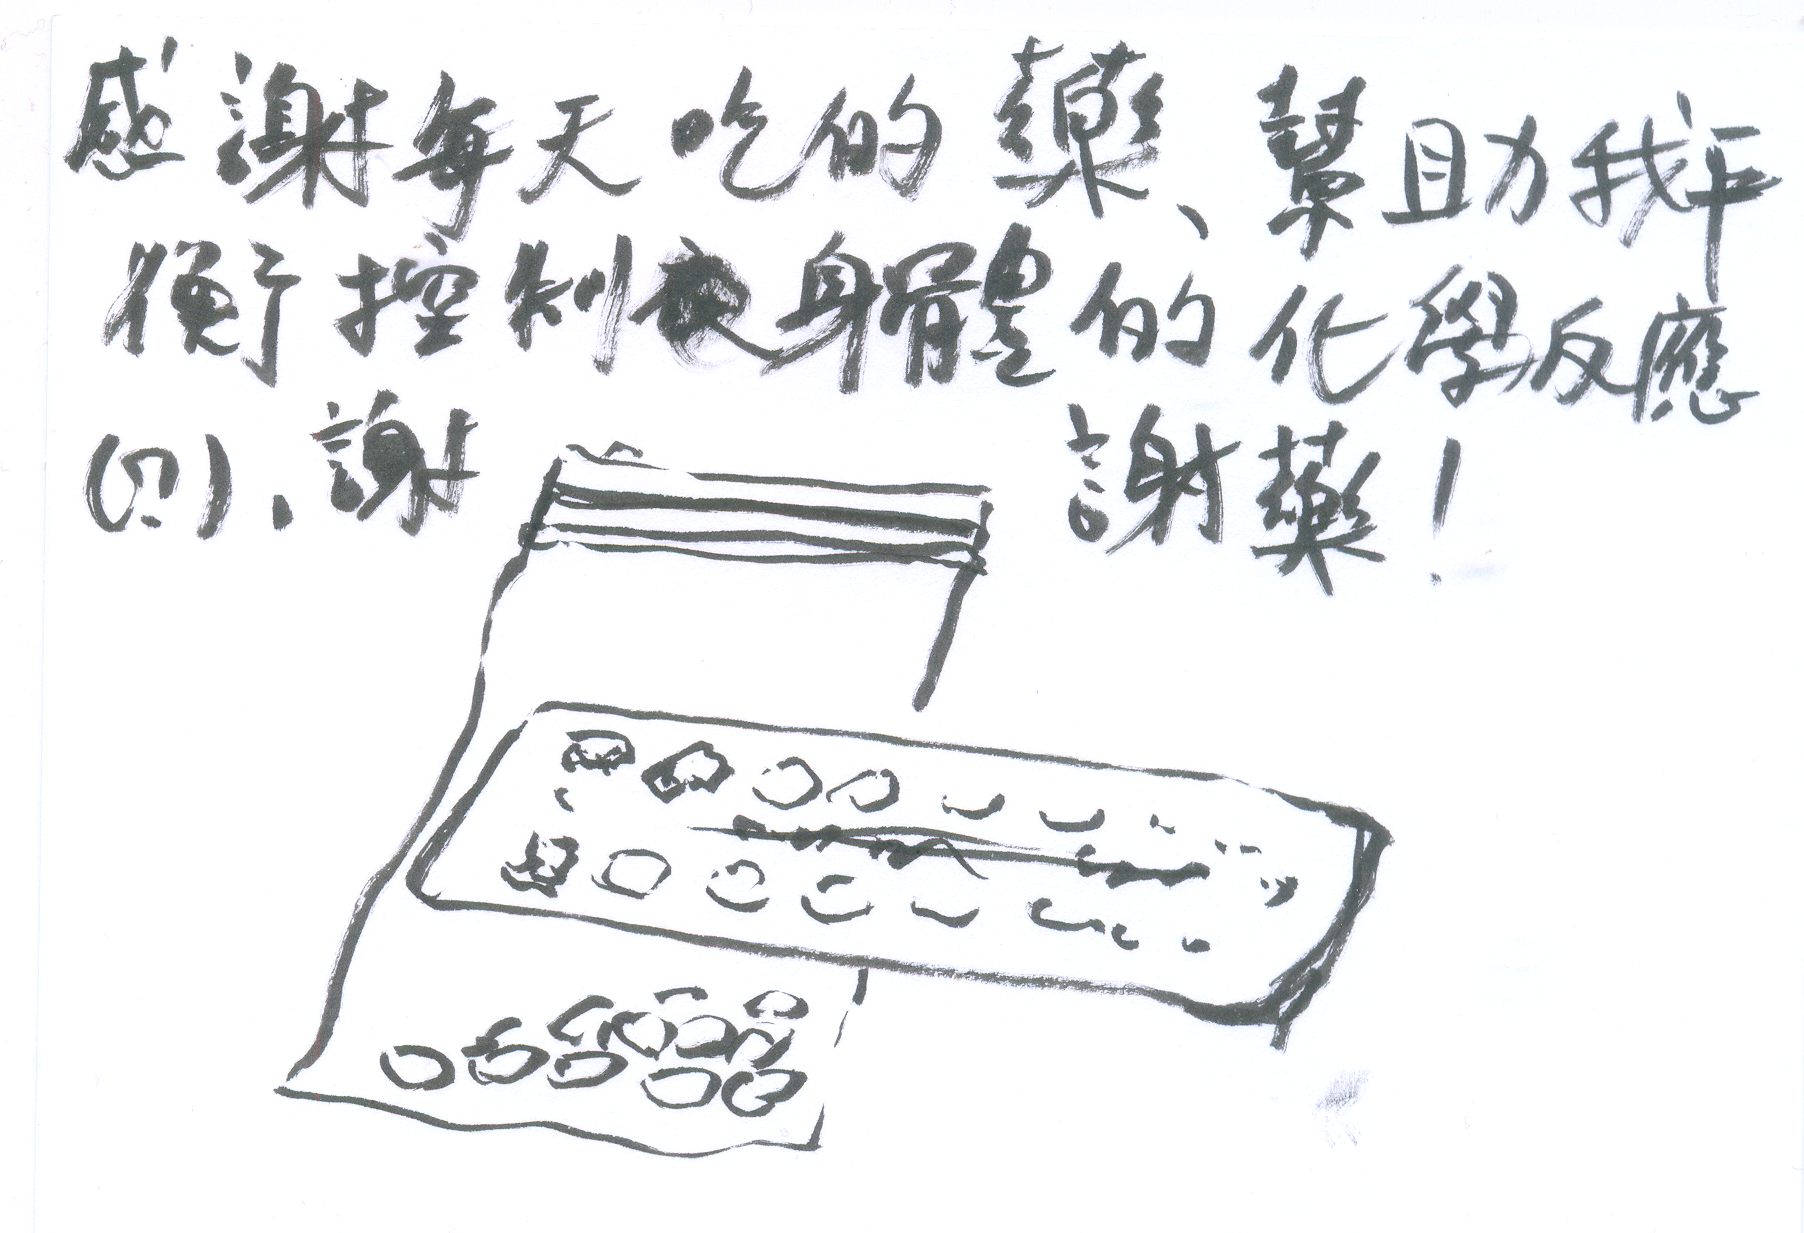 感謝每天吃的藥、幫助我平
衡控制衣身體的化學反應
(?!)、謝謝藥!